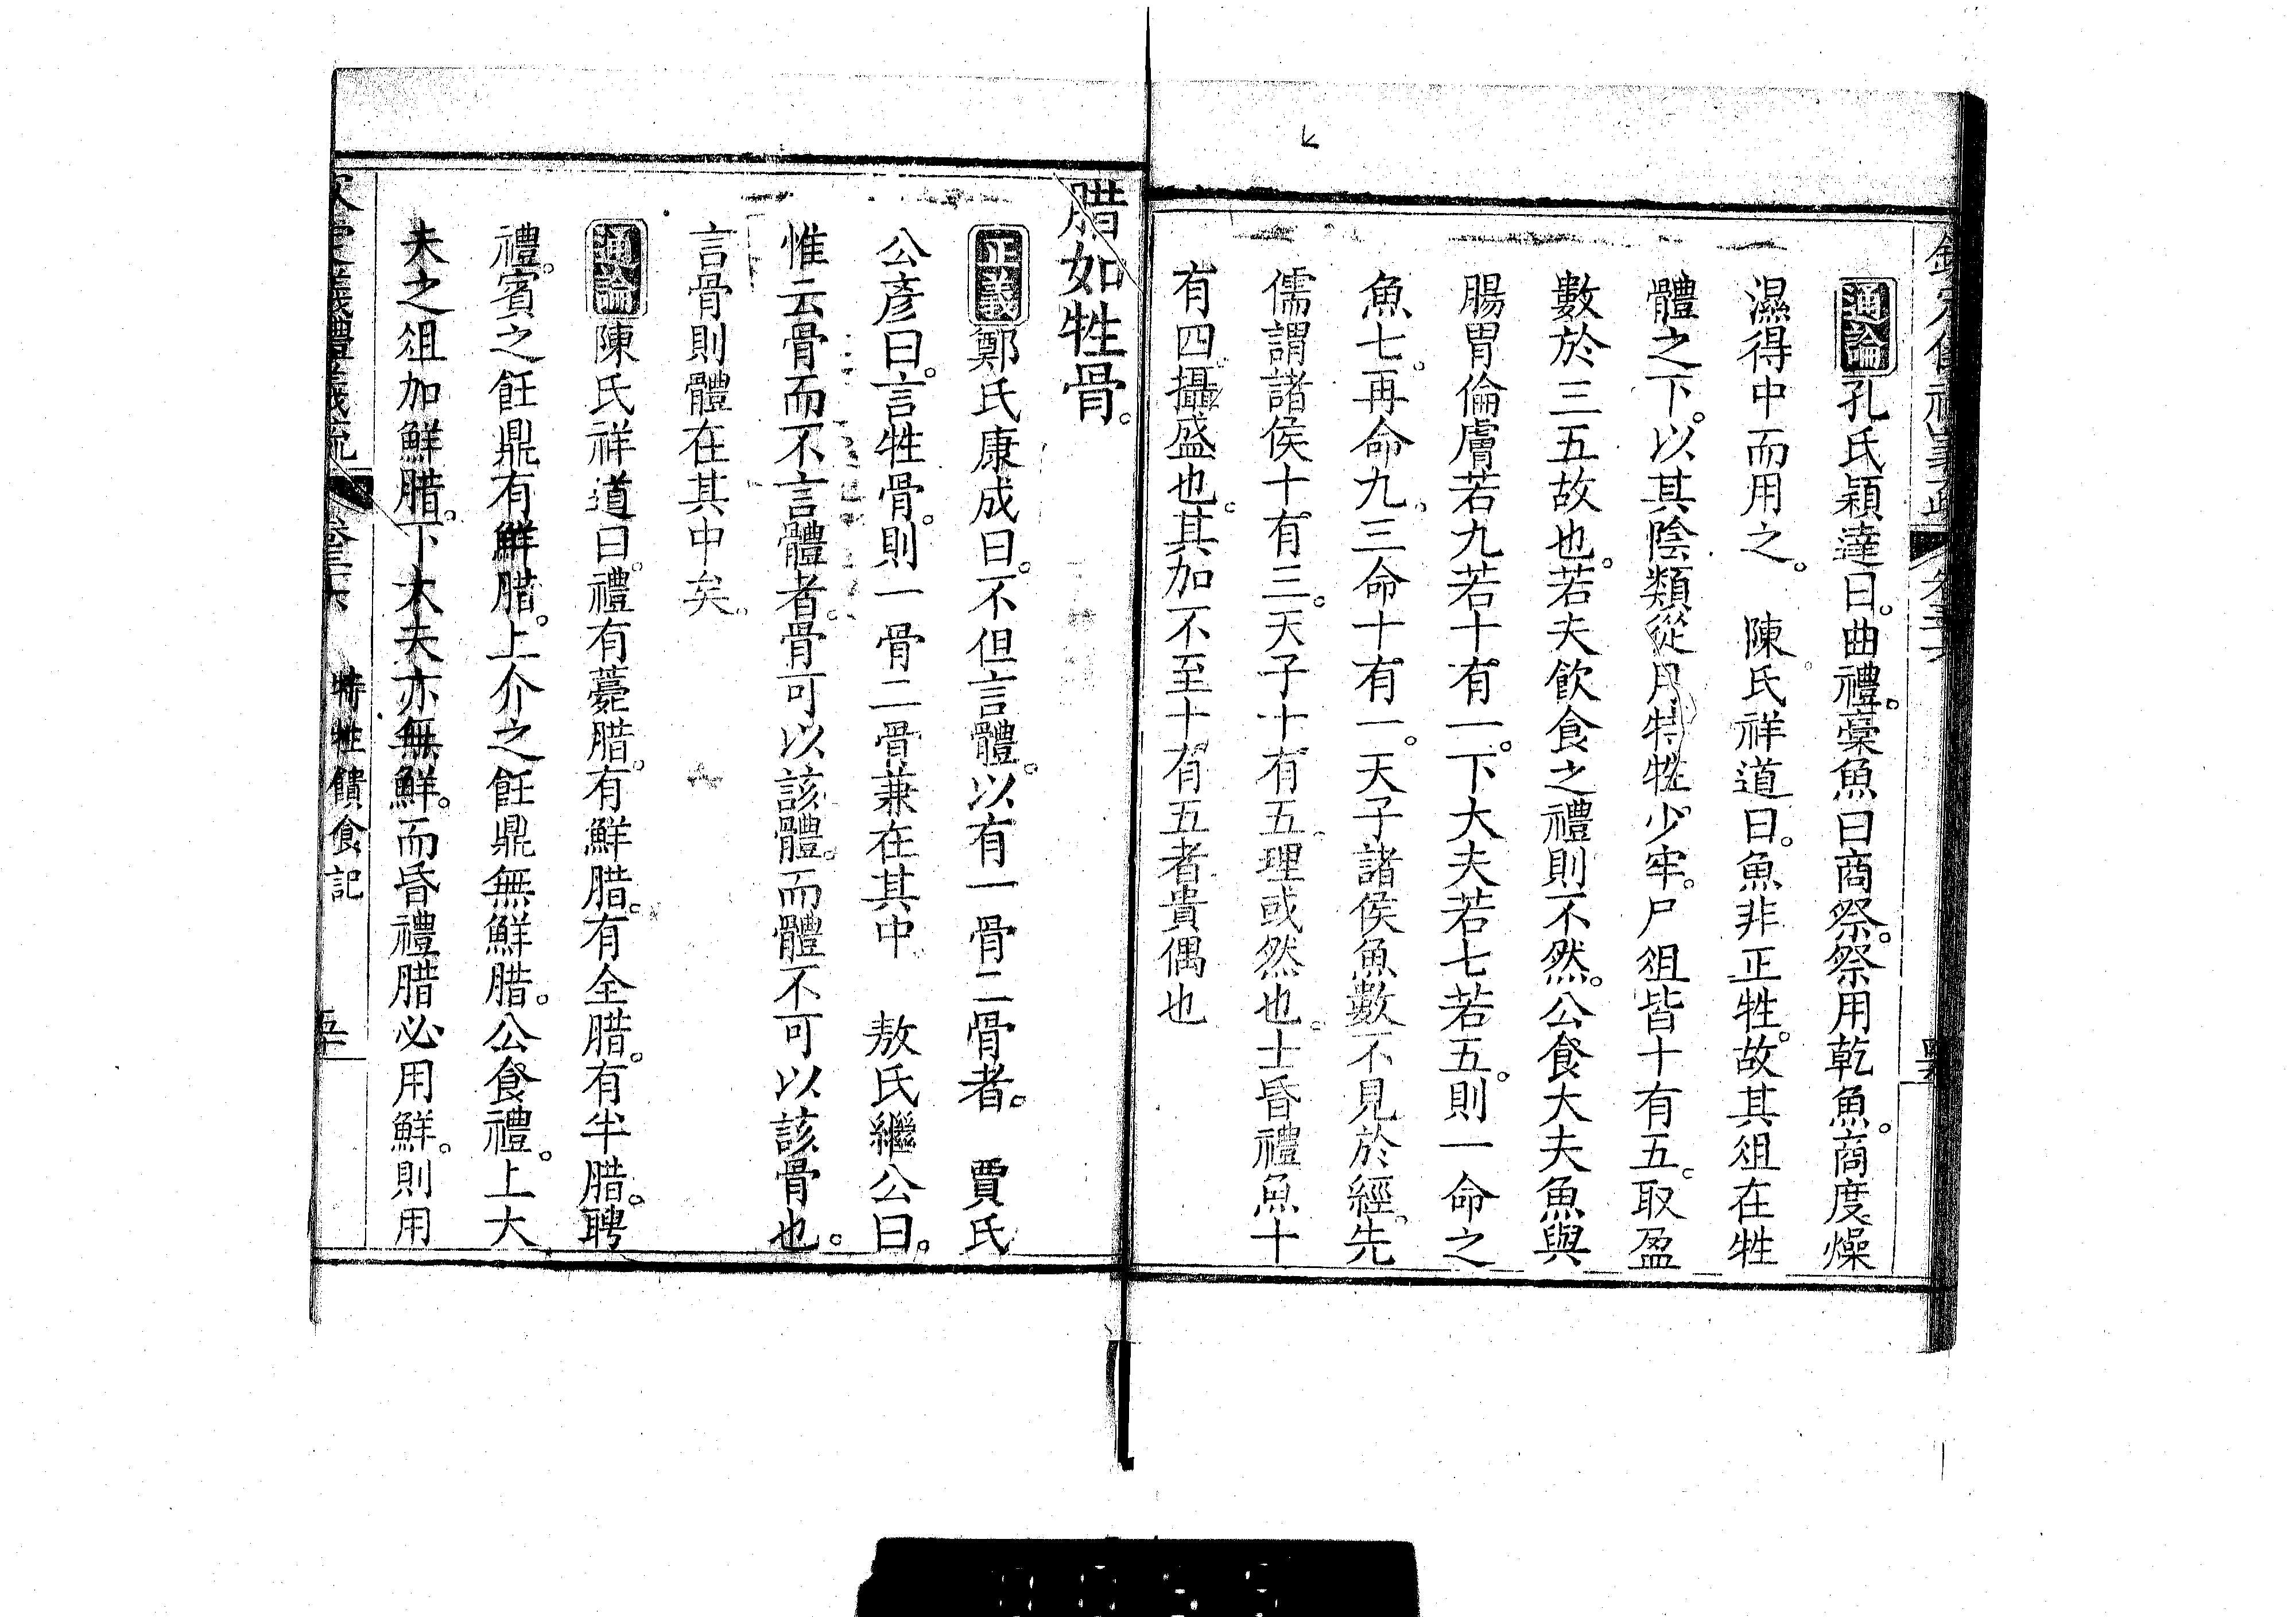 通論孔氏穎達曰。曲禮。槀魚曰商祭。祭用乾魚。商度燥
濕得中而用之。　陳氏祥道曰。魚非正牲。故其俎在牲
體之下。以其陰類從月特牲。少牢。尸俎皆十有五。取盈
數於三五故也。若夫飲食之禮則不然。公食大夫魚與
腸胃倫膚若九若十有一。下大夫若七若五。則一命之
魚七。再命九。三命十有一。天子諸侯魚數不見於經。先
儒謂諸侯十有三。天子十有五。理或然也。士昏禮魚十
有四。攝盛也。其加不至十有五者貴偶也
腊如牲骨。
正義鄭氏康成曰。不但言體。以有一骨二骨者。　賈氏
公彥曰。言牲骨。則一骨二骨兼在其中。　敖氏繼公曰。
惟云骨而不言體者。骨可以該體。而體不可以該骨也。
言骨則體在其中矣。
通論陳氏祥道曰。禮有薧腊。有鮮腊。有全腊。有半腊。聘
禮。賓之飪鼎有鮮腊。上介之飪鼎無鮮腊。公食禮。上大
夫之俎加鮮腊。下大夫亦無鮮。而昏禮腊必用鮮。則用
特牲饋食記